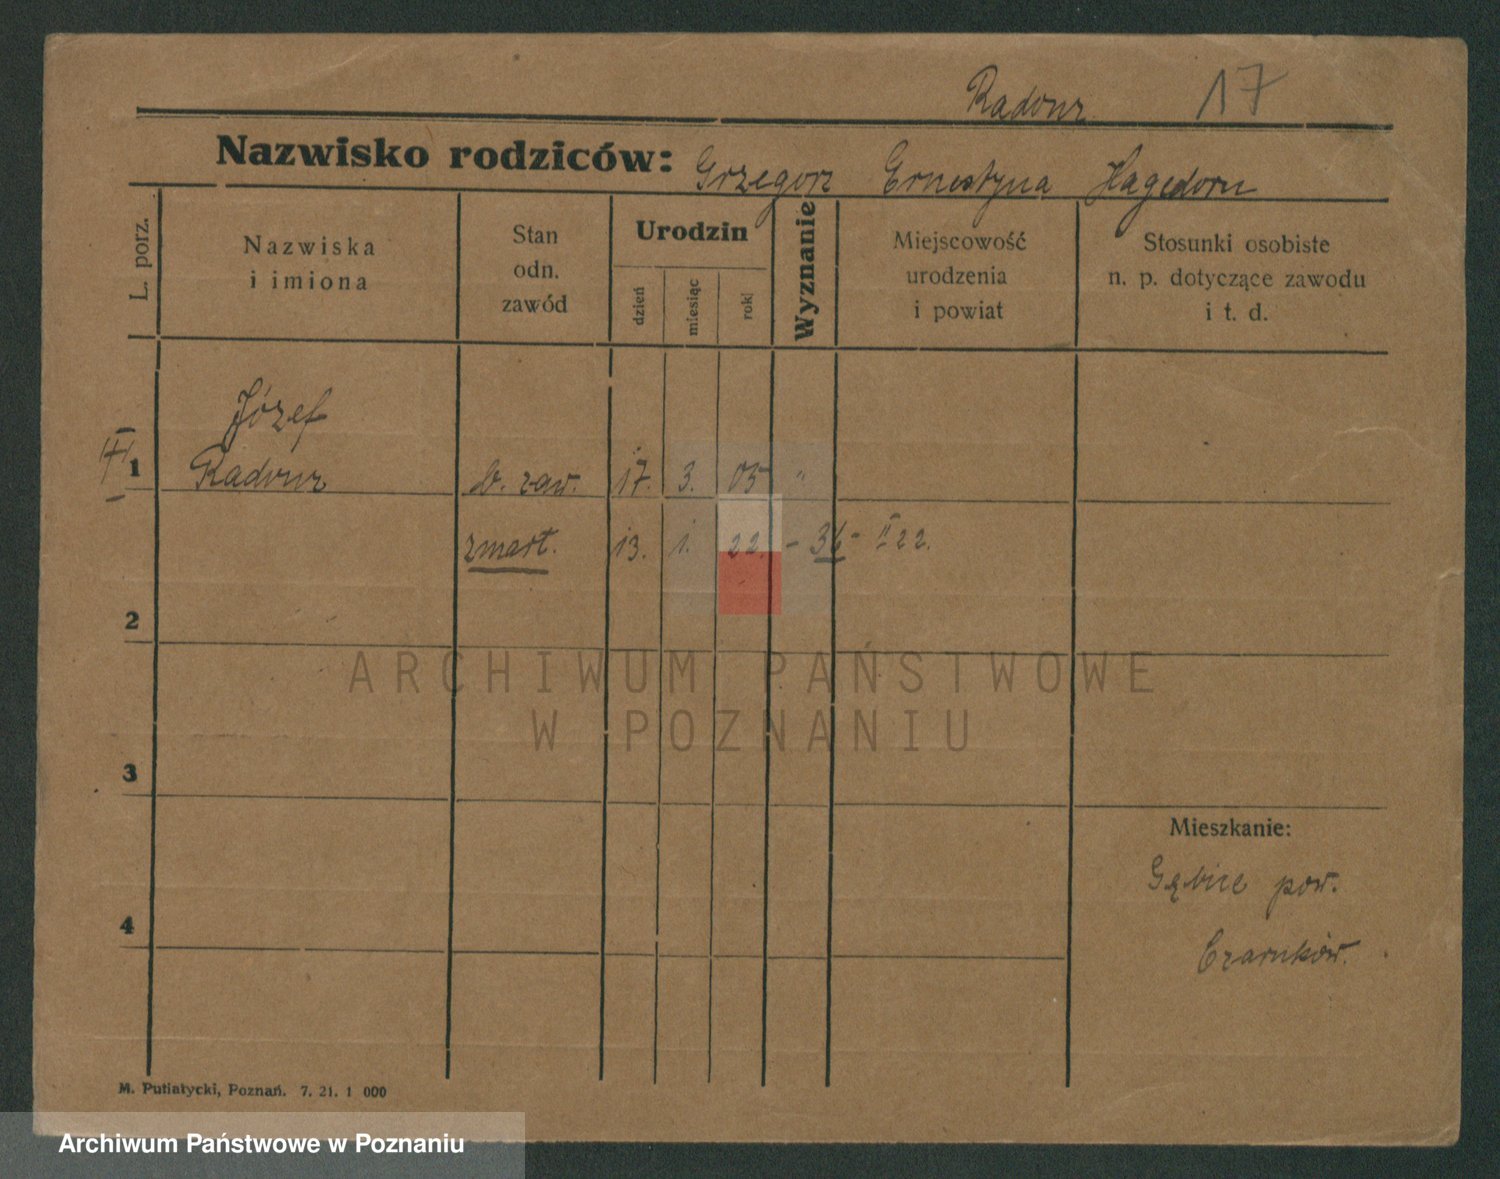 Radomz 17
Nazwisko rodziców: Grzegorz Ernestyna Hagedorn
L. porz.
Nazwiska
i imiona
Stan
odn.
zawód
Urodzin
dzień
miesiąc
rok
Wyznanie
Miejscowość
urodzenia
i powiat
Stosunki osobiste
n. p. dotyczące zawodu
i t. d.
Józef
1 Radomz b. zaw. 17. 3. 05 "
zmarł. 13. 1. 22. - 36 - II 22.
2
3
4
Mieszkanie:
Gębice pow.
Czarnków.
M. Putiatycki, Poznań. 7. 21. 1 000
ARCHIWUM PAŃSTWOWE
W POZNANIU
Archiwum Państwowe w Poznaniu